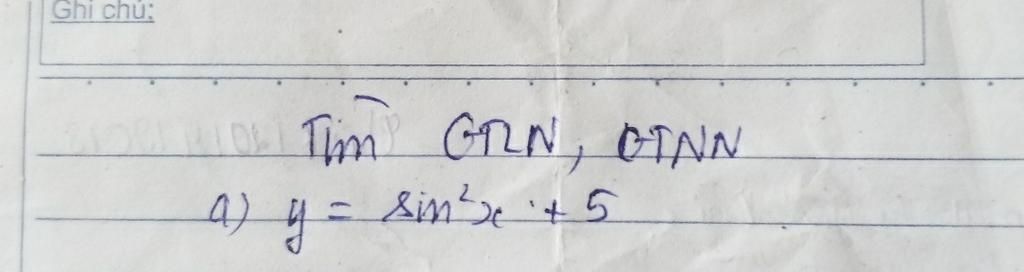 Ghi chú:
Tìm GTLN, GTNN
a) y = sin²x + 5